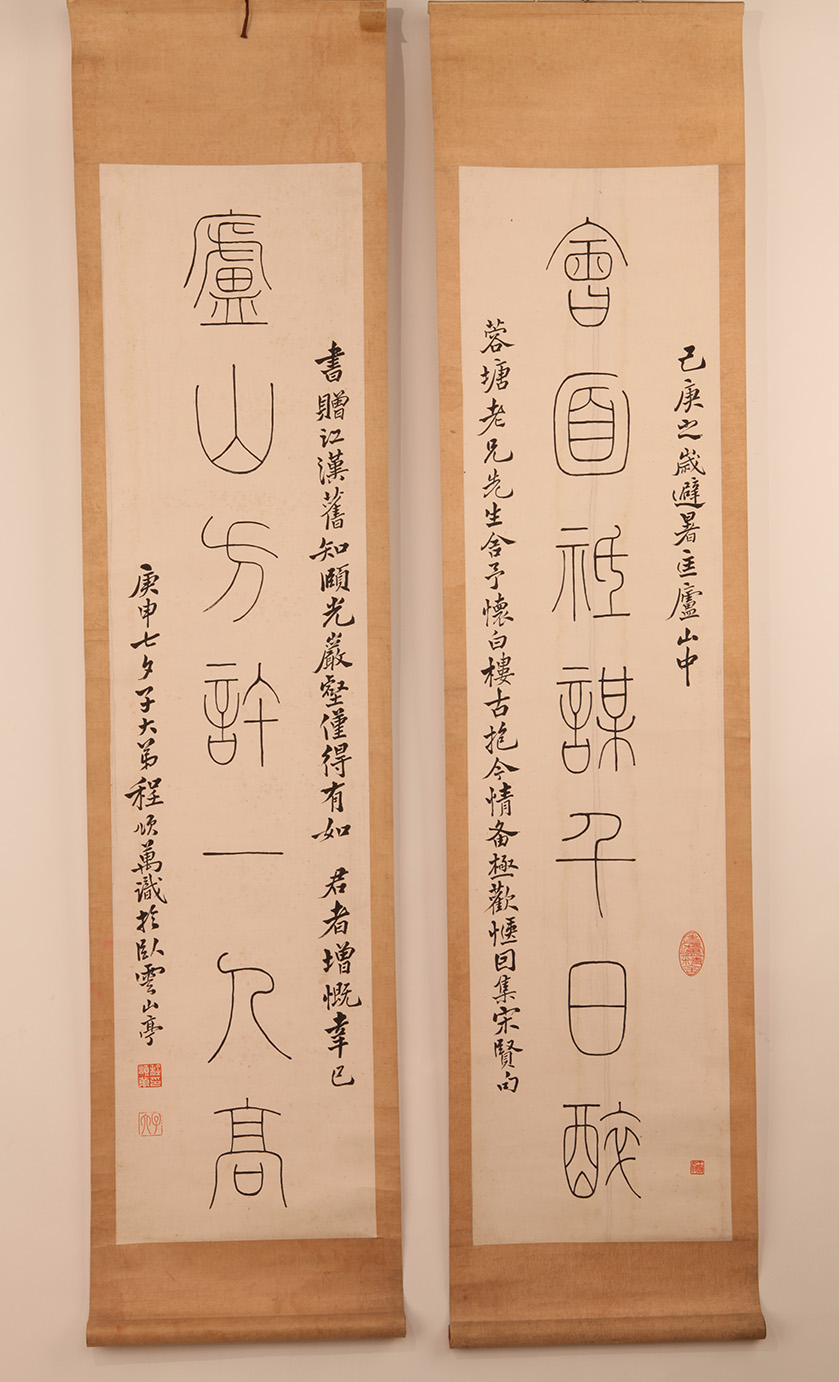 己庚之歲避暑匡廬山中
會面祗謀千日醉
蓉塘老兄先生舍予懷白樓古抱今情备極歡愜回集宋賢句
書贈江漢舊知頤光巖壑僅得有如 君者增慨幸已
盧山方許一人高
庚申七夕子大弟程頌萬識於臥雲山亭